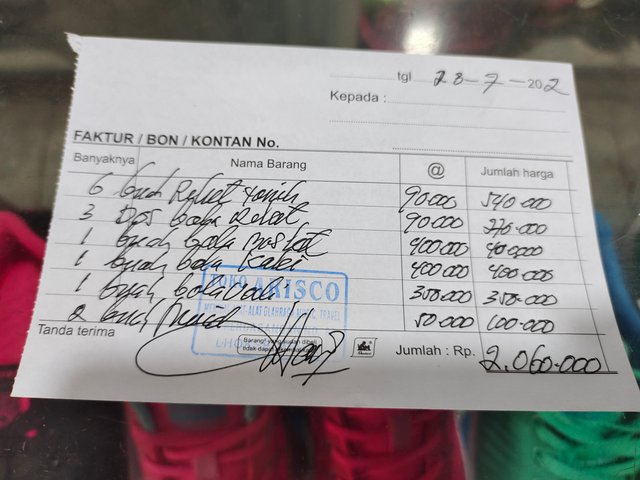 tgl 28-7-202
Kepada :
FAKTUR / BON / KONTAN No.
Banyaknya Nama Barang @ Jumlah harga
6 buah Raket 90.000 540.000
3 Dos bola 90.000 270.000
1 buah bola basket 400.000 400.000
1 buah bola kaki 400.000 400.000
1 buah bola Voli 350.000 350.000
2 buah 50.000 100.000
TOKO ARISCO
Tanda terima
Barang² yang sudah dibeli
tidak dapat
Jumlah : Rp. 2.060.000